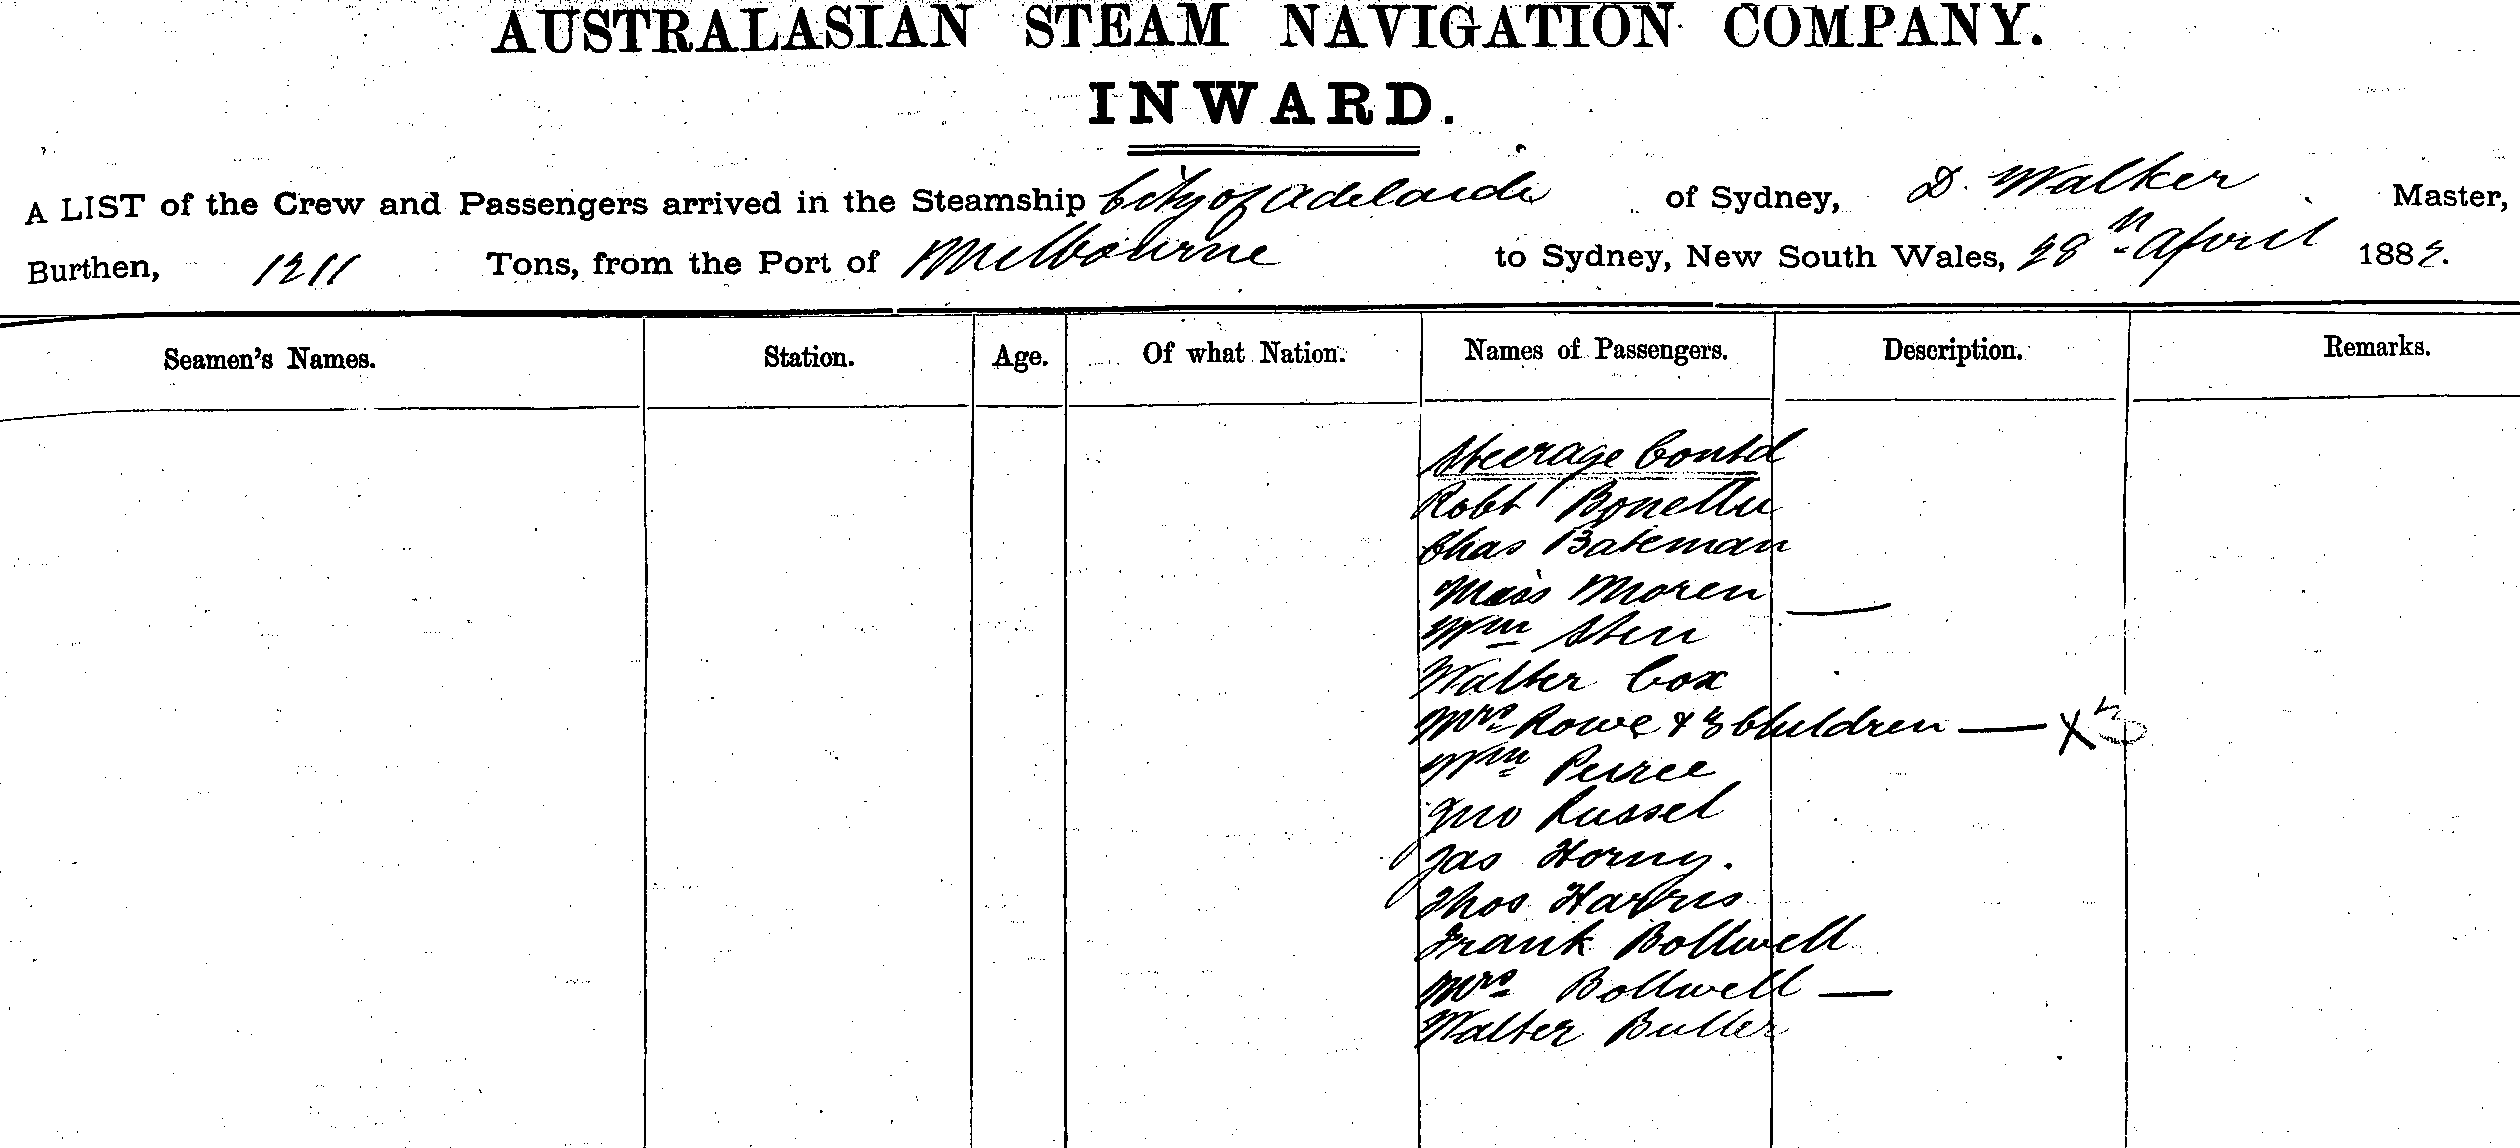 AUSTRALASIAN STEAM NAVIGATION COMPANY.
INWARD.
A LIST of the Crew and Passengers arrived in the Steamship City of Adelaide of Sydney, D. Walker Master,
Burthen, 1211 Tons, from the Port of Melbourne to Sydney, New South Wales, 28th April 1882.
Seamen's Names. Station. Age. Of what Nation. Names of Passengers. Description. Remarks.
Steerage Contd
Robt
Chas Bateman
Miss Moren —
Wm
Walter Cox
Mrs Rowe & 3 Children — X
Wm Peirce
Jno Russel
Jas Horny.
Thos Harris
Frank Bollwell
Mrs Bollwell —
Walter Butler